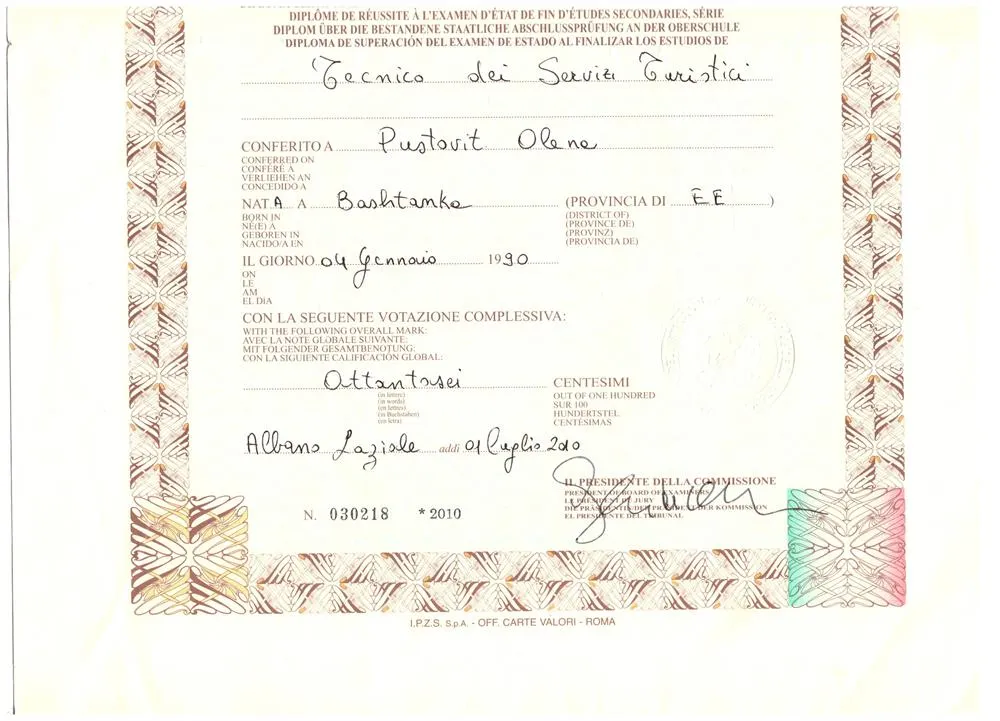 DIPLÔME DE RÉUSSITE À L'EXAMEN D'ÉTAT DE FIN D'ÉTUDES SECONDARIES, SÉRIE
DIPLOM ÜBER DIE BESTANDENE STAATLICHE ABSCHLUSSPRÜFUNG AN DER OBERSCHULE
DIPLOMA DE SUPERACIÓN DEL EXAMEN DE ESTADO AL FINALIZAR LOS ESTUDIOS DE
Tecnico dei Servizi Turistici
CONFERITO A Pustovit Olena
CONFERRED ON
CONFÉRÉ À
VERLIEHEN AN
CONCEDIDO A
NATA A Bashtanka (PROVINCIA DI EE)
BORN IN (DISTRICT OF)
NÉ(E) A (PROVINCE DE)
GEBOREN IN (PROVINZ)
NACIDO/A EN (PROVINCIA DE)
IL GIORNO 04 Gennaio 1990
ON
LE
AM
EL DIA
CON LA SEGUENTE VOTAZIONE COMPLESSIVA:
WITH THE FOLLOWING OVERALL MARK:
AVEC LA NOTE GLOBALE SUIVANTE:
MIT FOLGENDER GESAMTBENOTUNG:
CON LA SIGUIENTE CALIFICACIÓN GLOBAL:
Ottantasei CENTESIMI
(in lettere) OUT OF ONE HUNDRED
(in words) SUR 100
(en lettres) HUNDERTSTEL
(in Buchstaben) CENTÉSIMAS
(en letra)
Albano Laziale addì 01 luglio 2010
IL PRESIDENTE DELLA COMMISSIONE
PRESIDENT OF BOARD OF EXAMINERS
LE PRÉSIDENT DE JURY
DIE PRÄSIDENTIN/DER PRÄSIDENT DER KOMMISSION
EL PRESIDENTE DEL TRIBUNAL
N. 030218 *2010
I.P.Z.S. S.p.A. - OFF. CARTE VALORI - ROMA